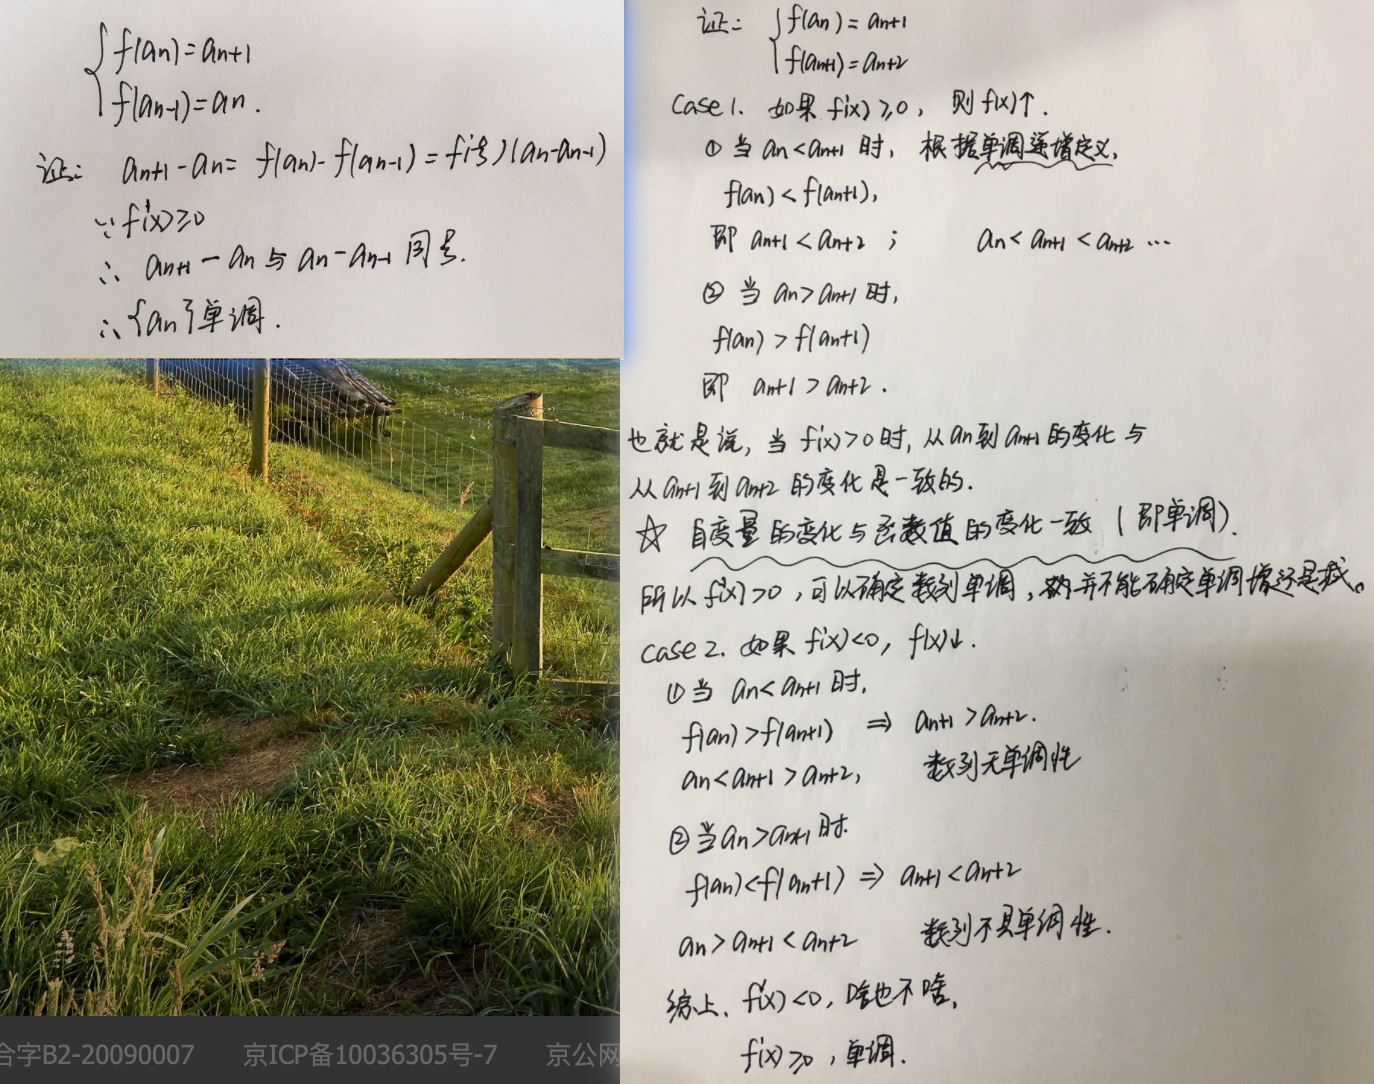 f(an)=an+1
f(an-1)=an.
证: an+1-an=f(an)-f(an-1)=f'(ξ)(an-an-1)
∵f'(x)≥0
∴ an+1-an与an-an-1同号.
∴{an}单调.
证: f(an)=an+1
f(an+1)=an+2
Case 1. 如果 f'(x)≥0, 则f(x)↑.
① 当 an<an+1 时, 根据单调递增定义,
f(an)<f(an+1),
即 an+1<an+2 ; an<an+1<an+2 …
② 当 an>an+1 时,
f(an)>f(an+1)
即 an+1>an+2.
也就是说, 当 f'(x)>0 时, 从an到an+1的变化与
从an+1到an+2的变化是一致的.
☆ 自变量的变化与函数值的变化一致 (即单调).
所以f'(x)>0, 可以确定数列单调, 并不能确定单调增还是减。
Case 2. 如果 f'(x)<0, f(x)↓.
① 当 an<an+1 时,
f(an)>f(an+1) ⇒ an+1>an+2.
an<an+1>an+2, 数列无单调性
② 当 an>an+1 时.
f(an)<f(an+1) ⇒ an+1<an+2
an>an+1<an+2 数列不具单调性.
综上, f'(x)<0, 啥也不啥,
f'(x)≥0, 单调.
合字B2-20090007 京ICP备10036305号-7 京公网